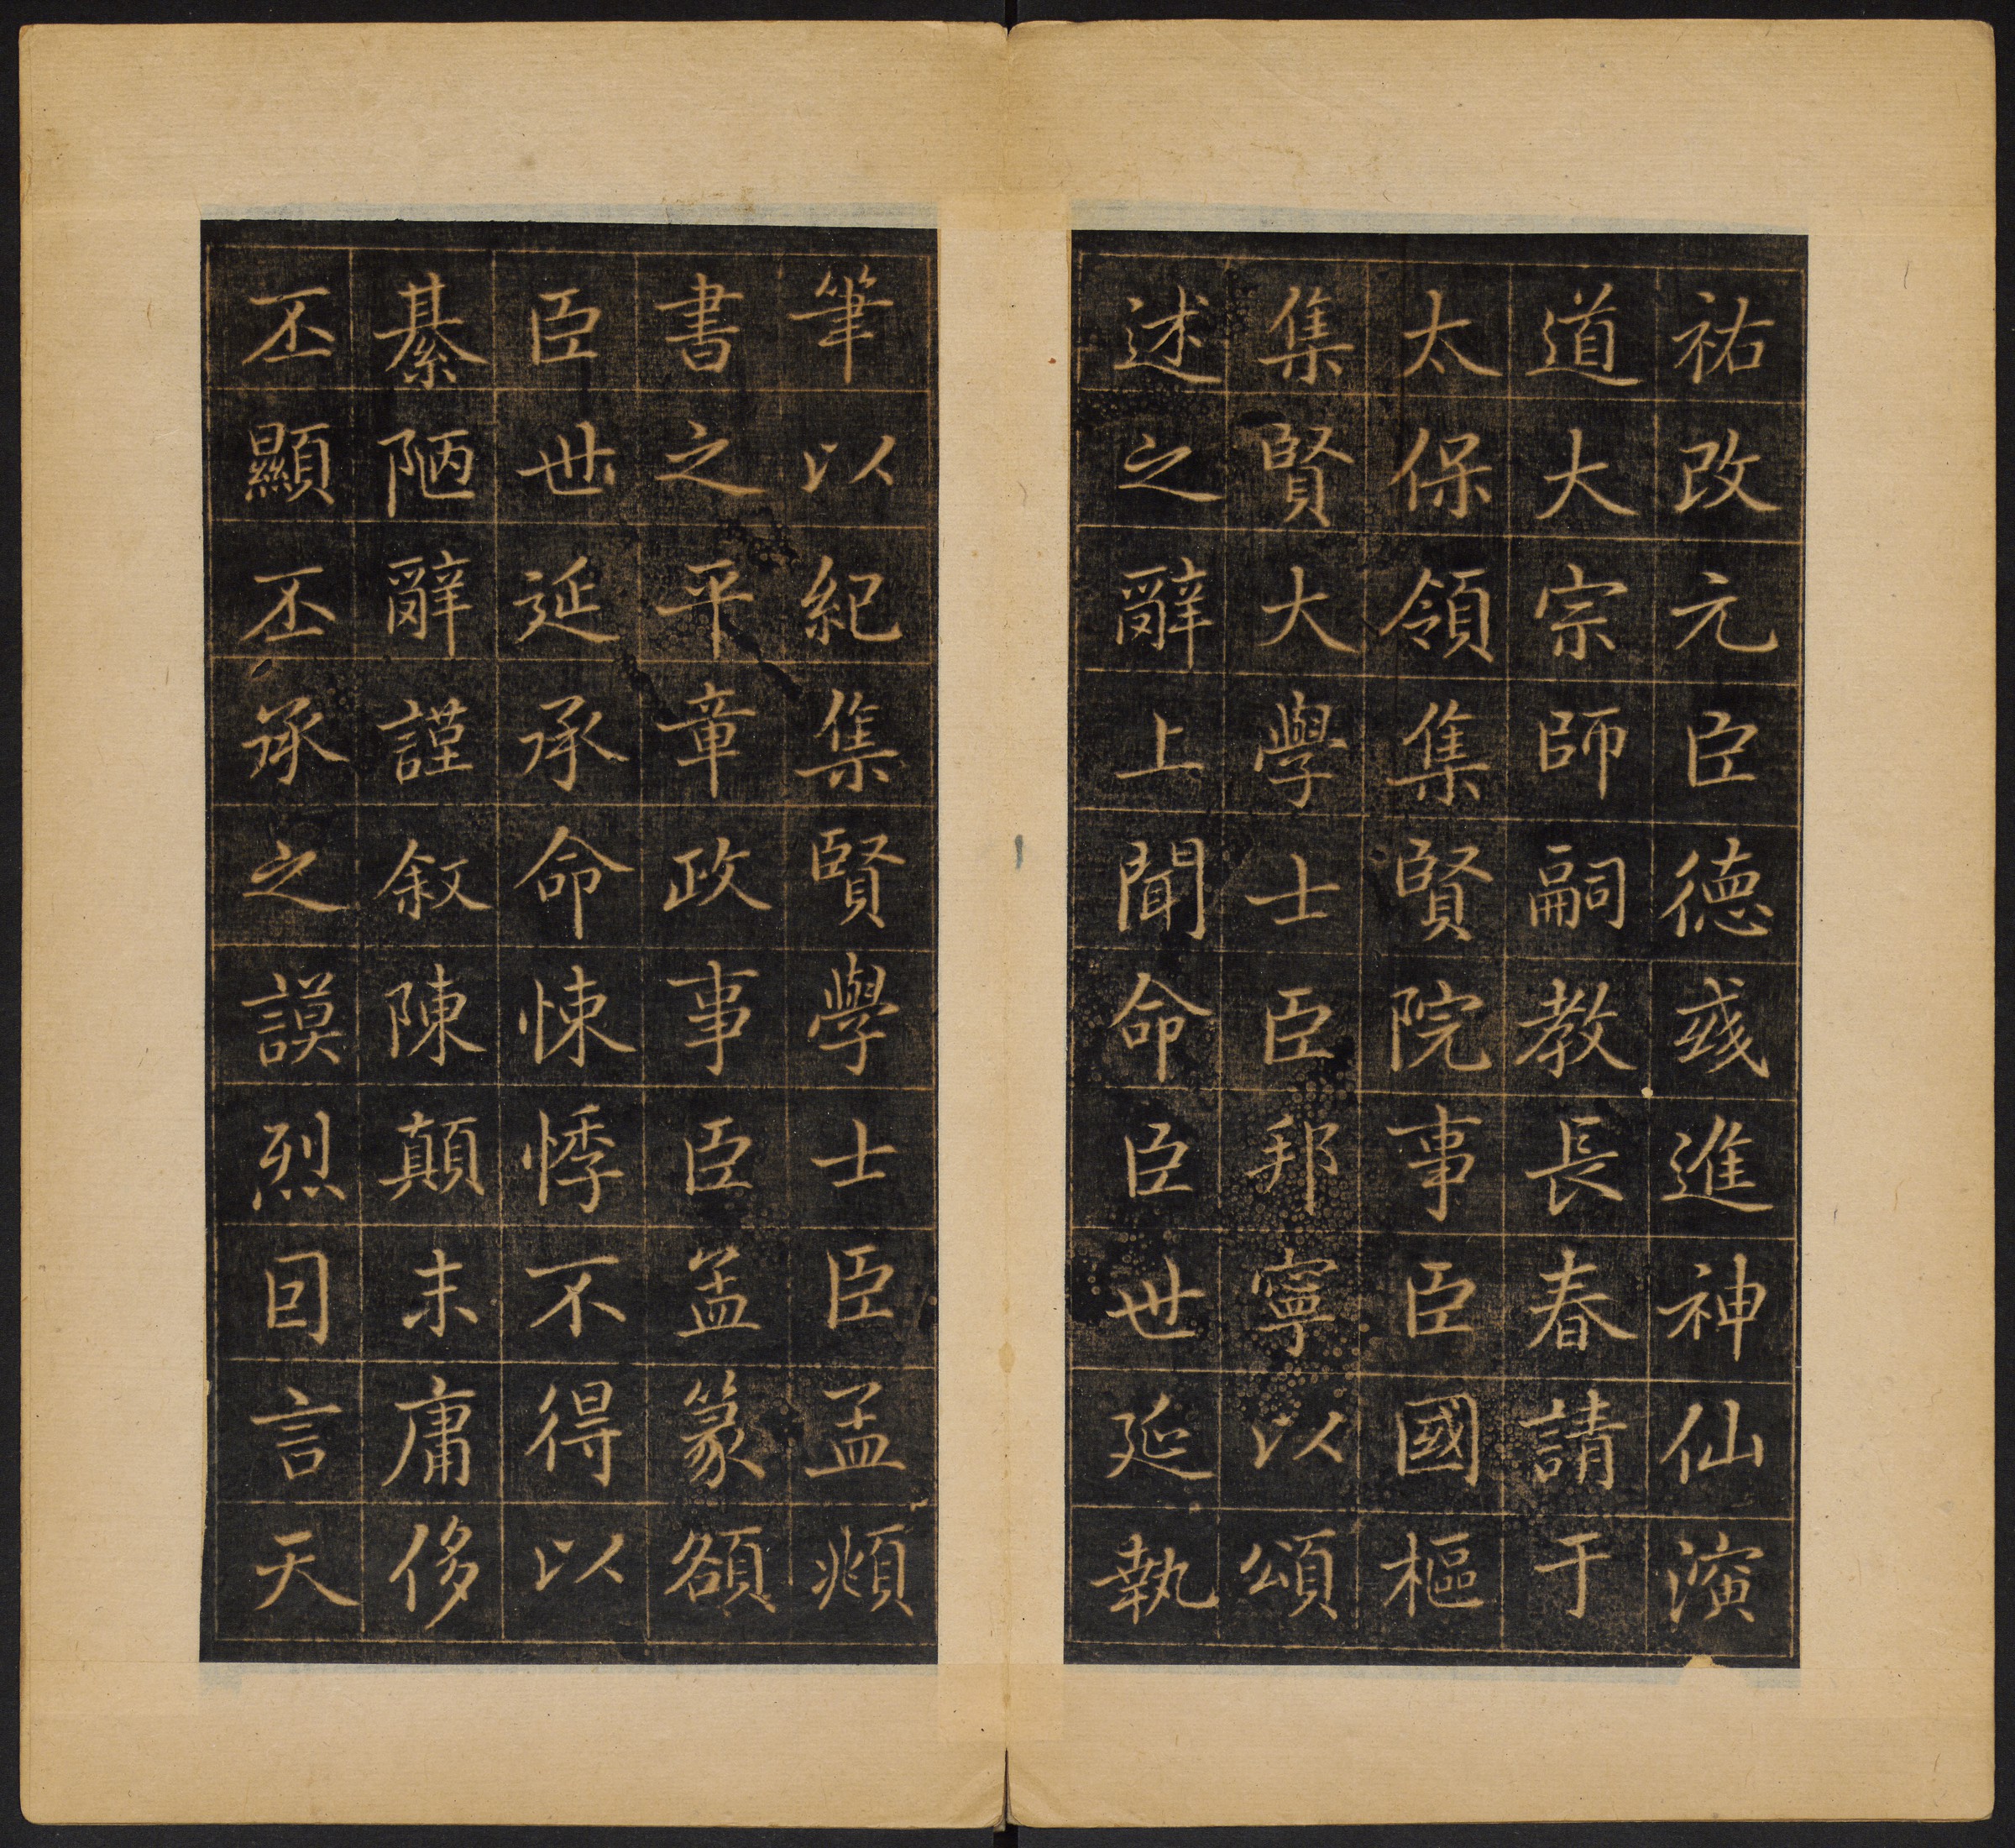 祐改元臣徳彧進神仙演
道大宗師嗣教長春請于
太保領集賢院事臣國樞
集賢大學士臣邦寧以頌
述之辭上聞命臣世延執
筆以紀集賢學士臣孟頫
書之平章政事臣孟篆額
臣世延承命悚悸不得以
綦陋辭謹叙陳顛末庸侈
丕顯丕承之謨烈囙言天